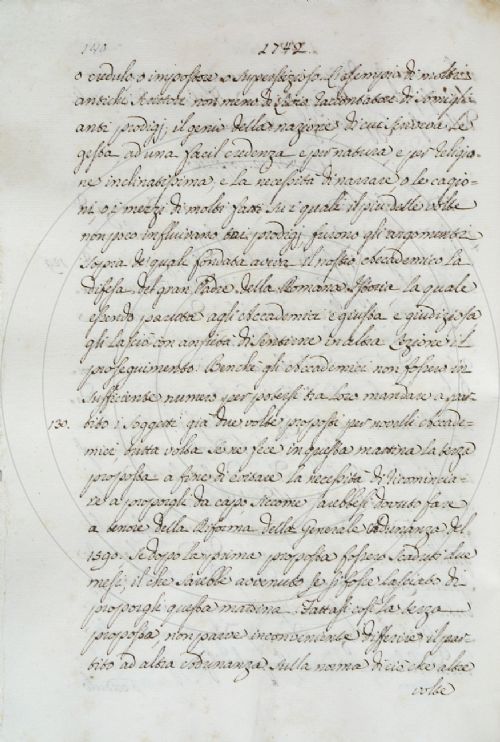 140
1742.
o credulo o impostore o superstizioso. L'esempio di molti
antichi Storici non meno di Livio raccontatore di simigli-
anti prodigj, il genio della nazione di cui scriveva le
gesta ad una facil credenza e per natura e per religio-
ne inclinatissima, e la necessità di narrare o le cagio-
ni o i mezzi di molti fatti su i quali il più delle volte
non poco influivano tai prodigj, furono gli argomenti
sopra de' quali fondata aveva il nostro Accademico la
difesa del gran Padre della Romana Istoria la quale
essendo paruta agli Accademici e giusta e giudiziosa
gli lasciò con ansietà di sentirne in altra Lezione il
proseguimento. Benchè gli Accademici non fossero in
sufficiente numero per potersi tra loro mandare a par-
130. tito i soggetti già due volte proposti per novelli Accade-
mici tutta volta se ne fece in questa mattina la terza
proposta a fine di evitare la necessità di ricomincia-
re a proporgli da capo siccome sarebbesi dovuto fare
a tenore della Riforma della Generale Adunanza del
1590. se dopo la prima proposta fossero scaduti due
mesi; il che sarebbe avvenuto se si fosse lasciato di
proporgli questa mattina. Fattasi così la terza
proposta, non parve inconveniente differire il par-
tito ad altra Adunanza sulla norma di ciò che altre
volte